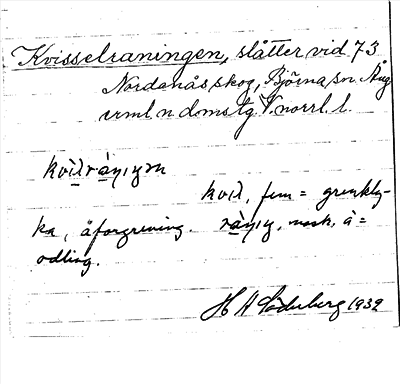 Kvisselraningen, slåtter vid 73
Nordanås skog, Björna sn. Ång
erml n doms lg. V. norrl. l.
kvil, fem = grenkly-
ka, åforgrening. mask, å=
odling.
H A Söderberg 1932